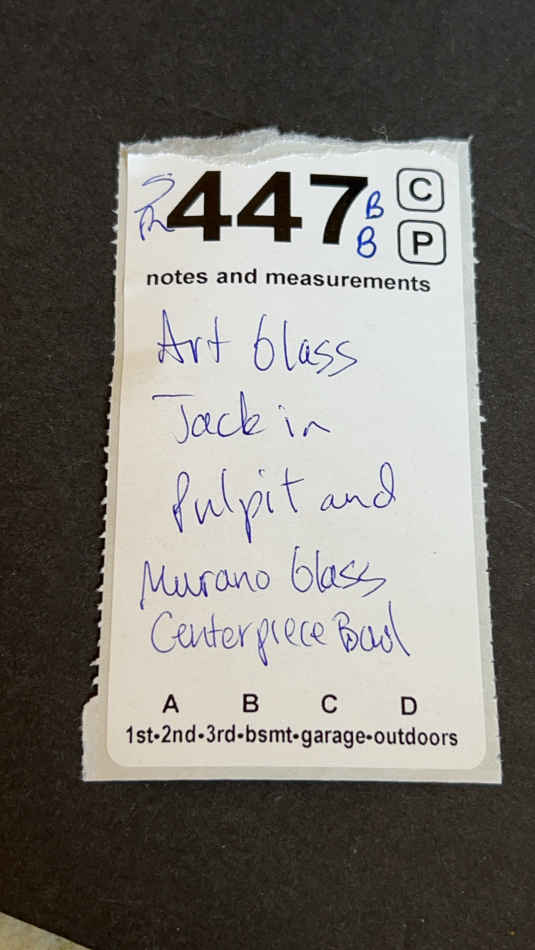 447 B C
B P
notes and measurements
Art Glass
Jack in
Pulpit and
Murano Glass
Centerpiece Bowl
A B C D
1st•2nd•3rd•bsmt•garage•outdoors